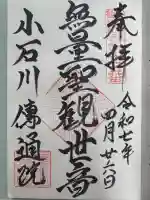 奉拝
令和七年
四月廿六日
無量聖観世音
小石川
傳通院